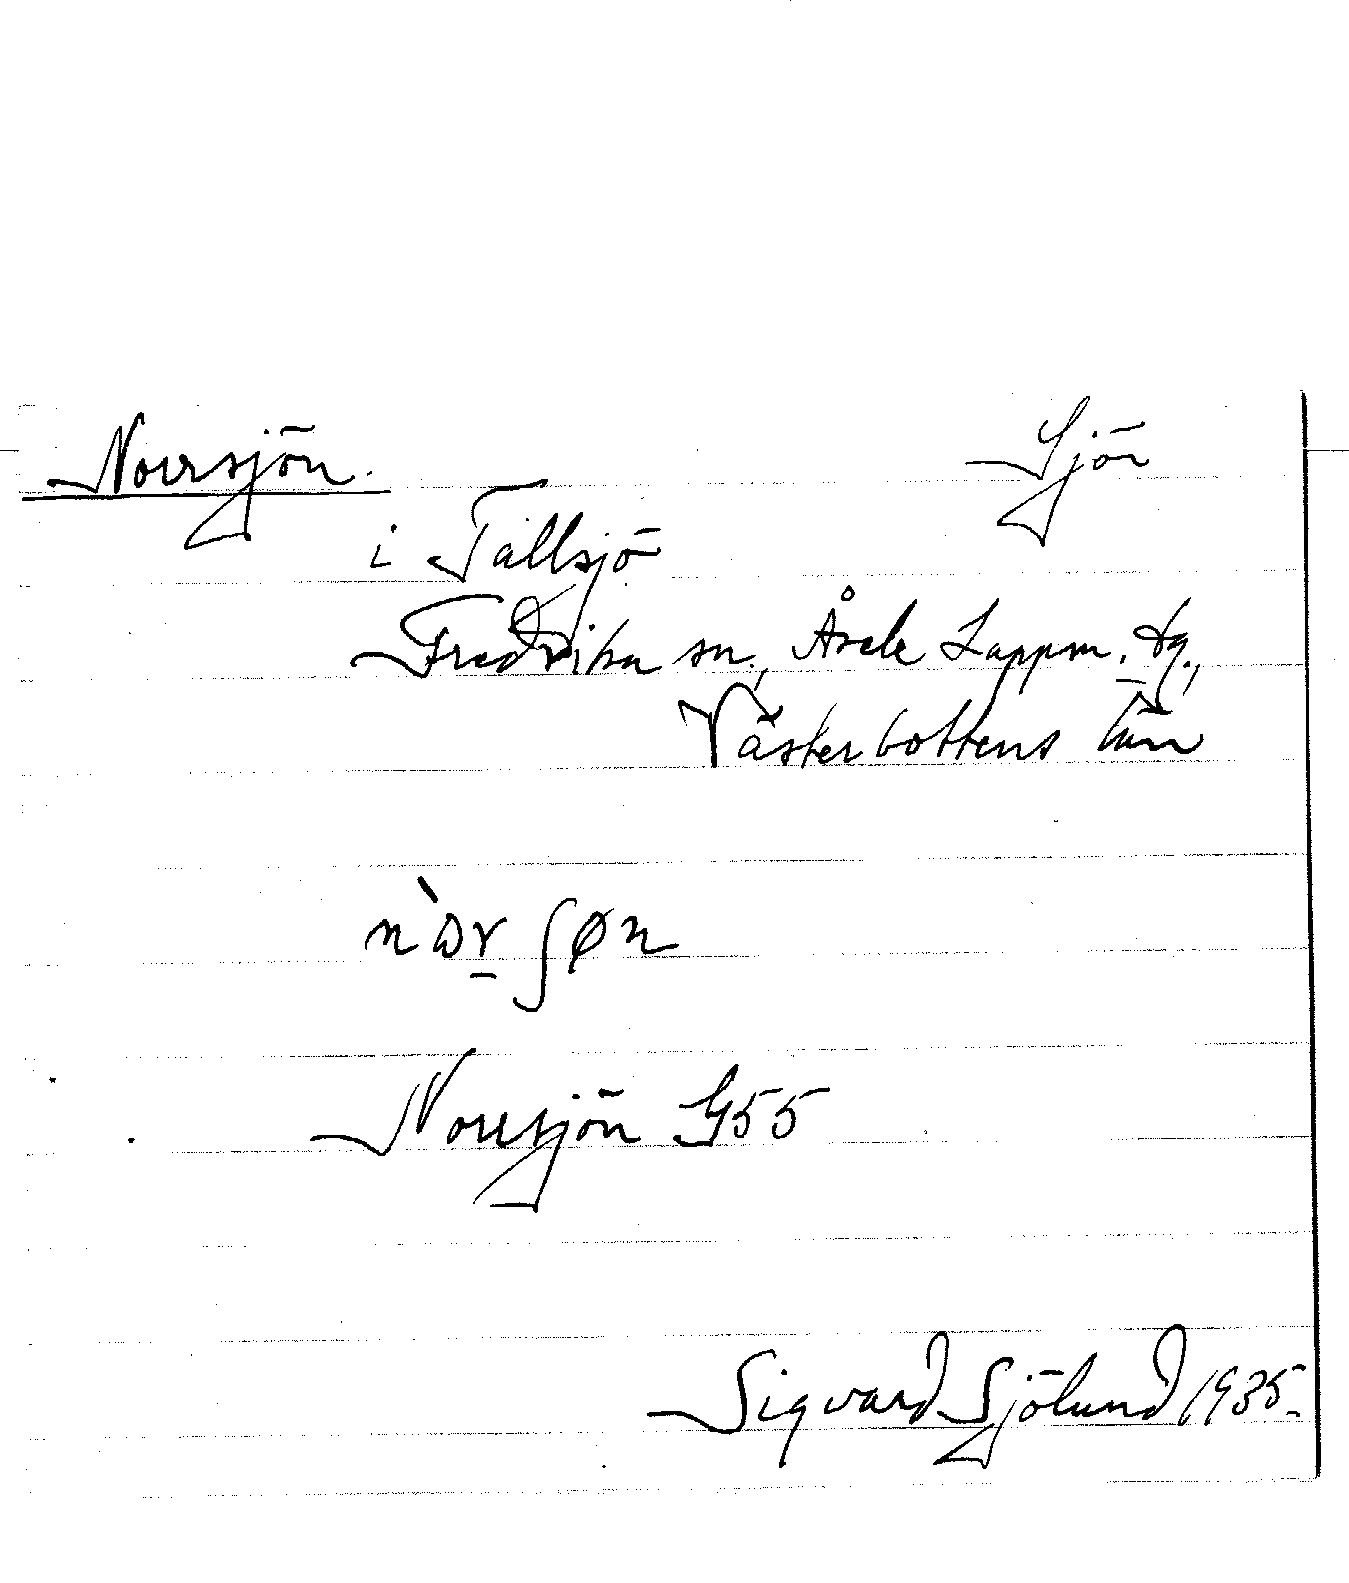 Norrsjön. Sjön
i Tallsjö
Fredrika sn., Åsele Lappm. tg.,
Västerbottens län
n`ɷr̲ʃøn
Norrsjön G55
Sigvard Sjölund 1935.